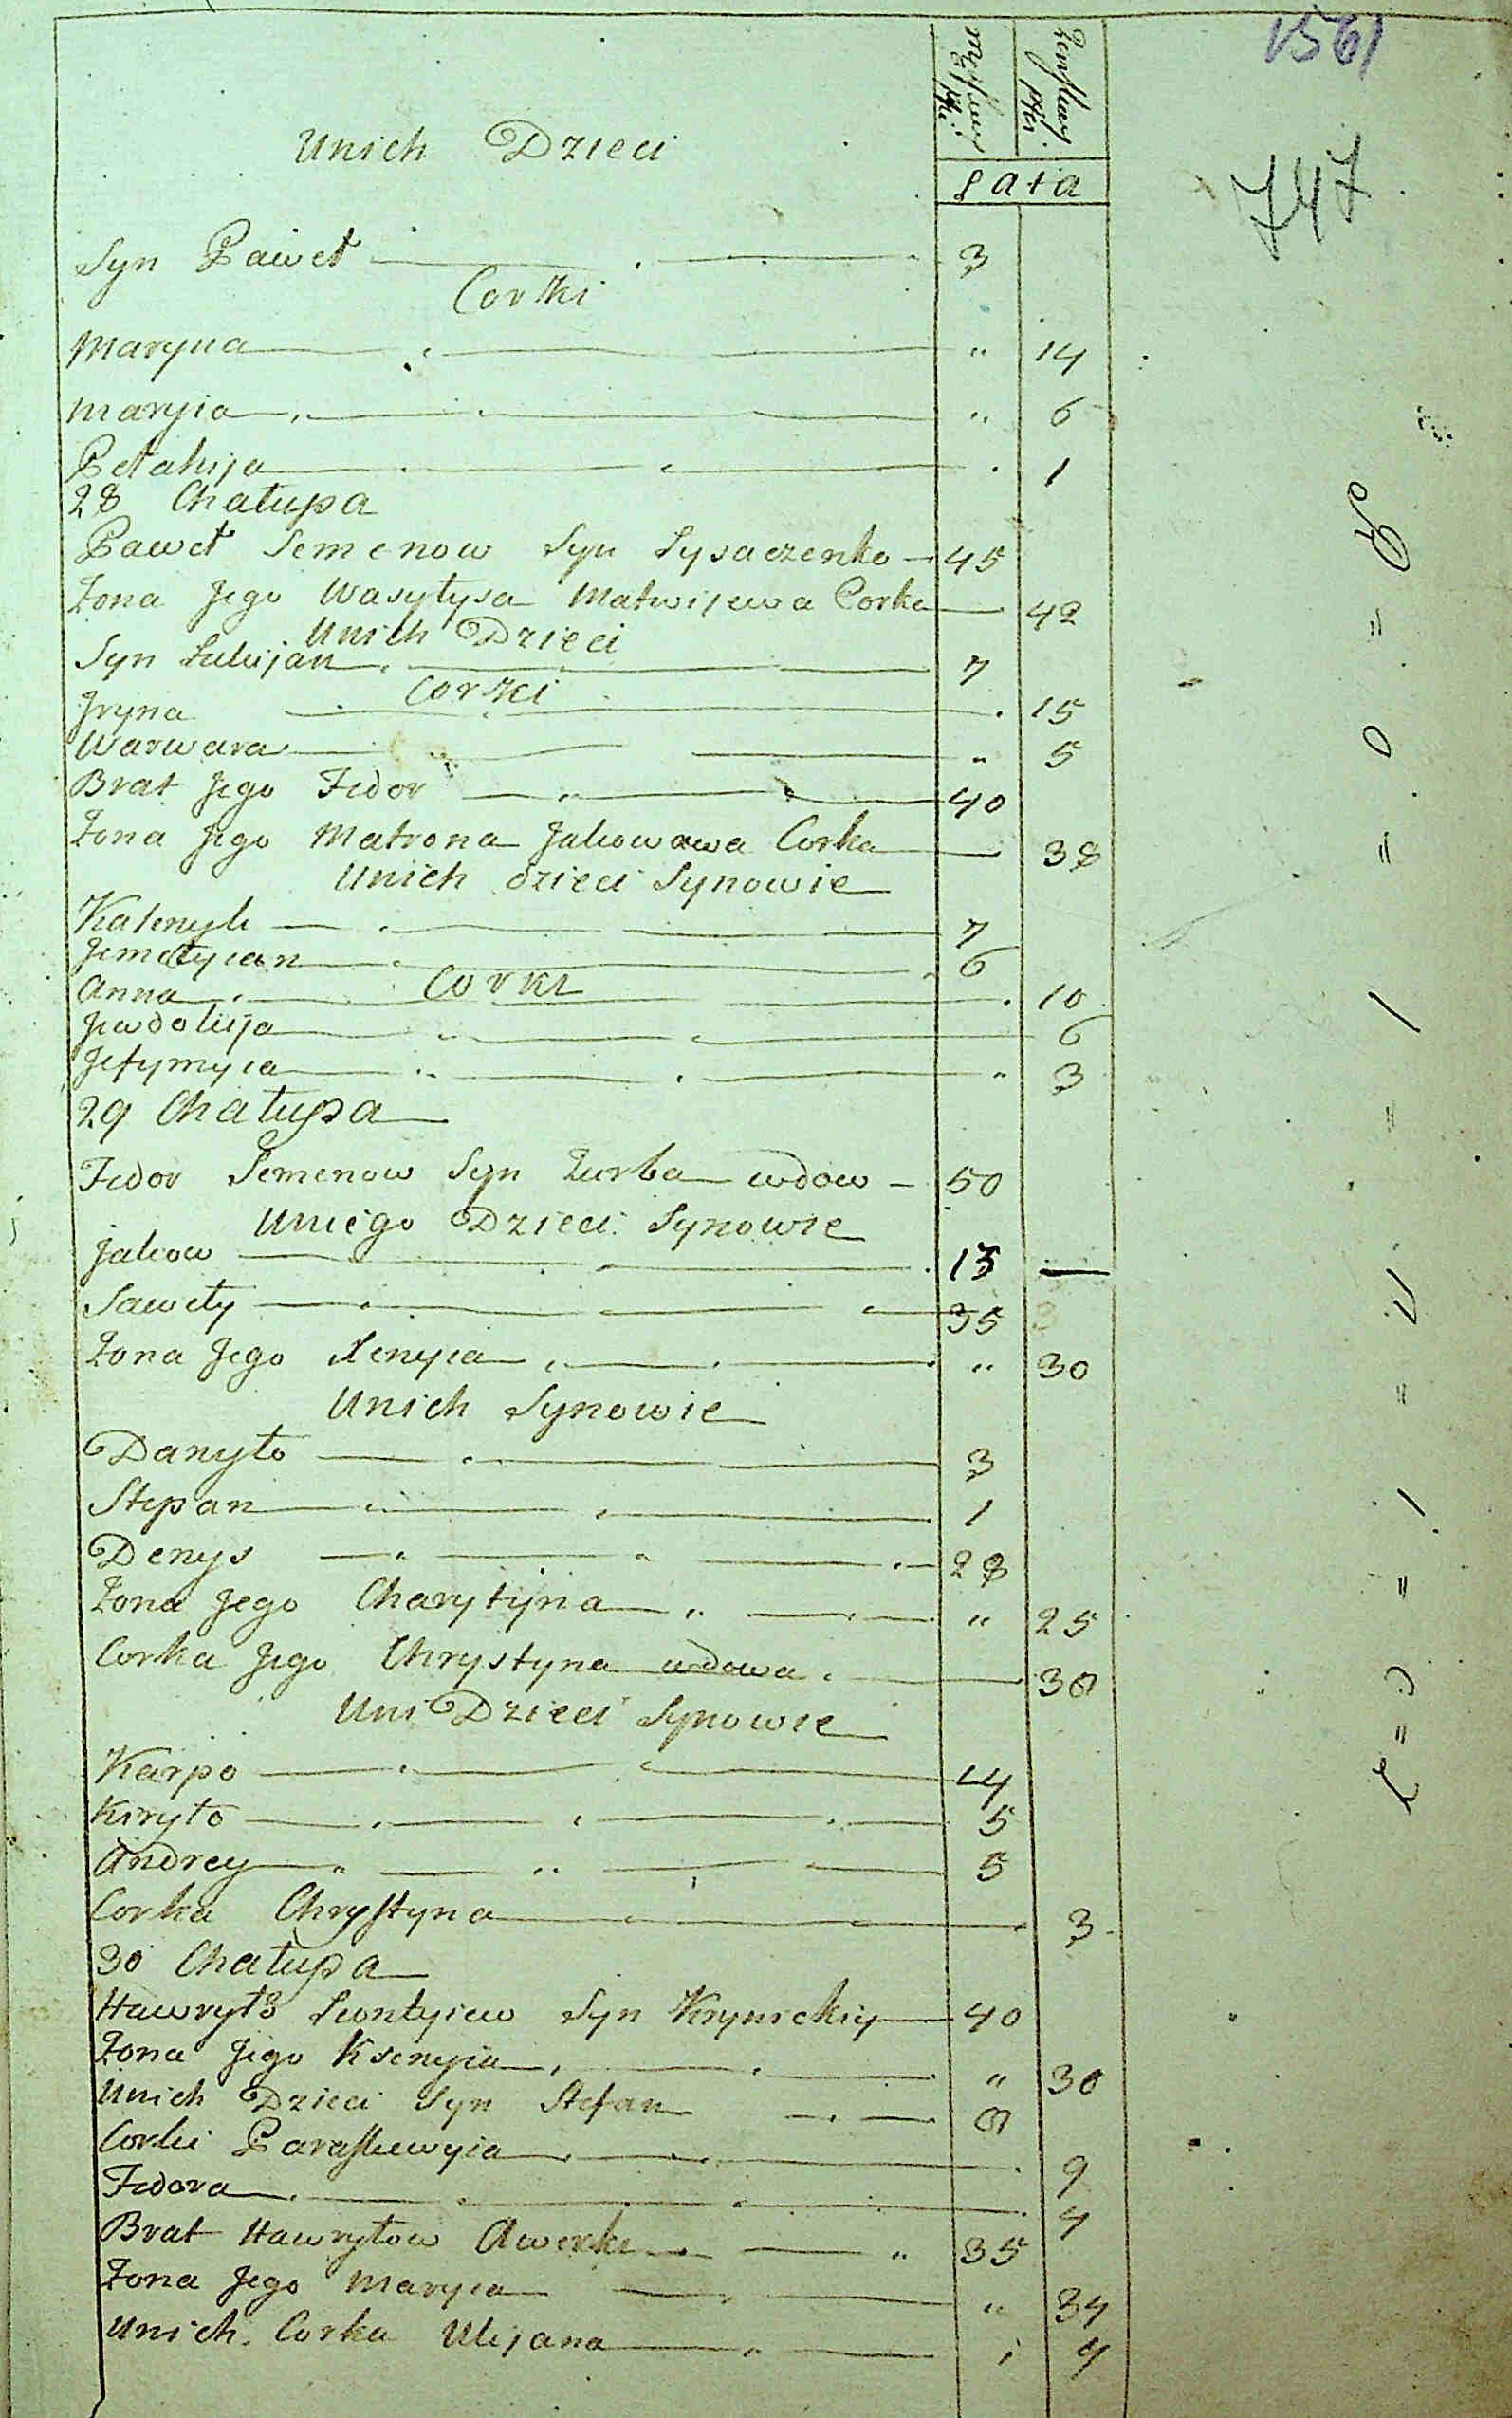 1561
747
Męskiey płci
Żenskiey płci
Lata
Unich Dzieci
Syn Paweł 3
Corki
Maryna " 14
Maryia " 6
Pełahija 1
28 Chałupa
Paweł Semenow Syn Lysaczenko 45
Żona Jego Wasyłysa Matwijewa Corka 42
Unich Dzieci
Syn Łukijan 7
Corki
Jryna 15
Warwara " 5
Brat Jego Fedor 40
Żona Jego Matrona Jakowawa Corka 38
Unich dzieci Synowie
Kalenyk 7
Jemełyian 6
Corki
Anna 10
Jewdokija 6
Jefymyia " 3
29 Chałupa
Fedor Semenow Syn Zurba wdow 50
Uniego Dzieci Synowie
Jakow 13 —
Sawety 35
Żona Jego Xenyia " 30
Unich Synowie
Danyło 3
Stepan 1
Denys 28
Żona Jego Charytyna " 25
Corka Jego Chrystyna wdowa 30
Uni Dzieci Synowie
Karpo 14
Kiryło 5
Andrey 5
Corka Chrystyna 3
30 Chałupa
Hawryło Leontyiew Syn Krynickiy 40
Żona Jego Ksenyia " 30
Unich Dzieci Syn Stefan
Corki Paraskewyia 9
Fedora 4
Brat Hawryłow Awerki " 35
Żona Jego Maryia " 34
Unich Corka Ulijana 4